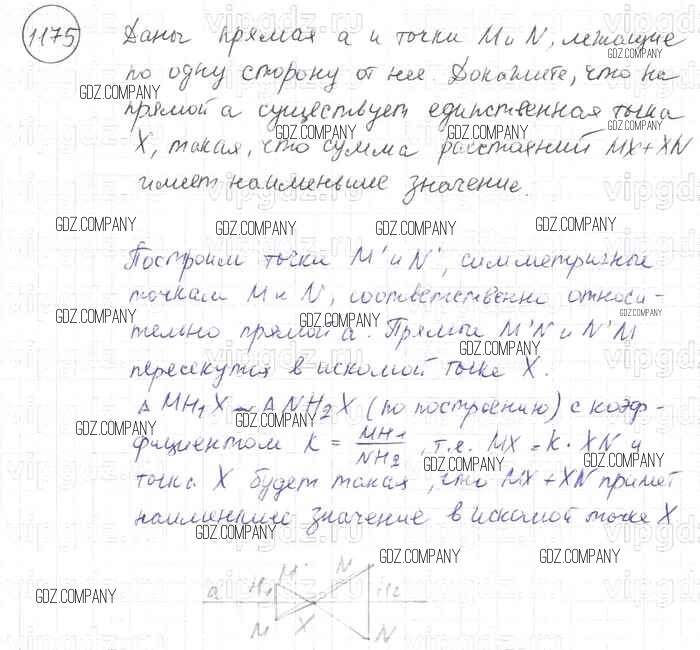 1175 Даны прямая a и точки M и N, лежащие
по одну сторону от нее. Докажите, что на
прямой a существует единственная точка
X, такая, что сумма расстояний MX+XN
имеет наименьшее значение.
Построим точки M' и N', симметричные
точкам M и N, соответственно относи-
тельно прямой a. Прямые M'N и N'M
пересекутся в искомой точке X.
Δ MH₁X ~ Δ NH₂X (по построению) с коэф-
фициентом K = MH₁/NH₂, т.е. MX = K · XN и
точка X будет такая, что MX + XN примет
наименьшее значение в искомой точке X
a H₁ M' N H₂
M X N
GDZ.COMPANY
vipgdz.ru